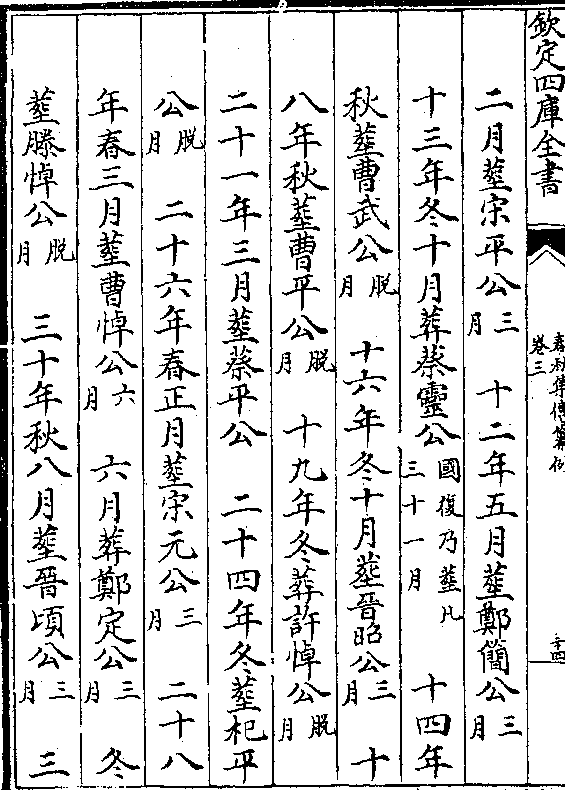 欽定四庫全書
春秋集傳纂例
卷三
二月葬宋平公三月 十二年五月葬鄭簡公三月
十三年冬十月葬蔡靈公國復乃葬凡三十一月 十四年
秋葬曹武公脱月 十六年冬十月葬晉昭公三月 十
八年秋葬曹平公脱月 十九年冬葬許悼公脱月
二十一年三月葬蔡平公 二十四年冬葬杞平
公脱月 二十六年春正月葬宋元公三月 二十八
年春三月葬曹悼公六月 六月葬鄭定公三月 冬
葬滕悼公脱月 三十年秋八月葬晉頃公三月 三